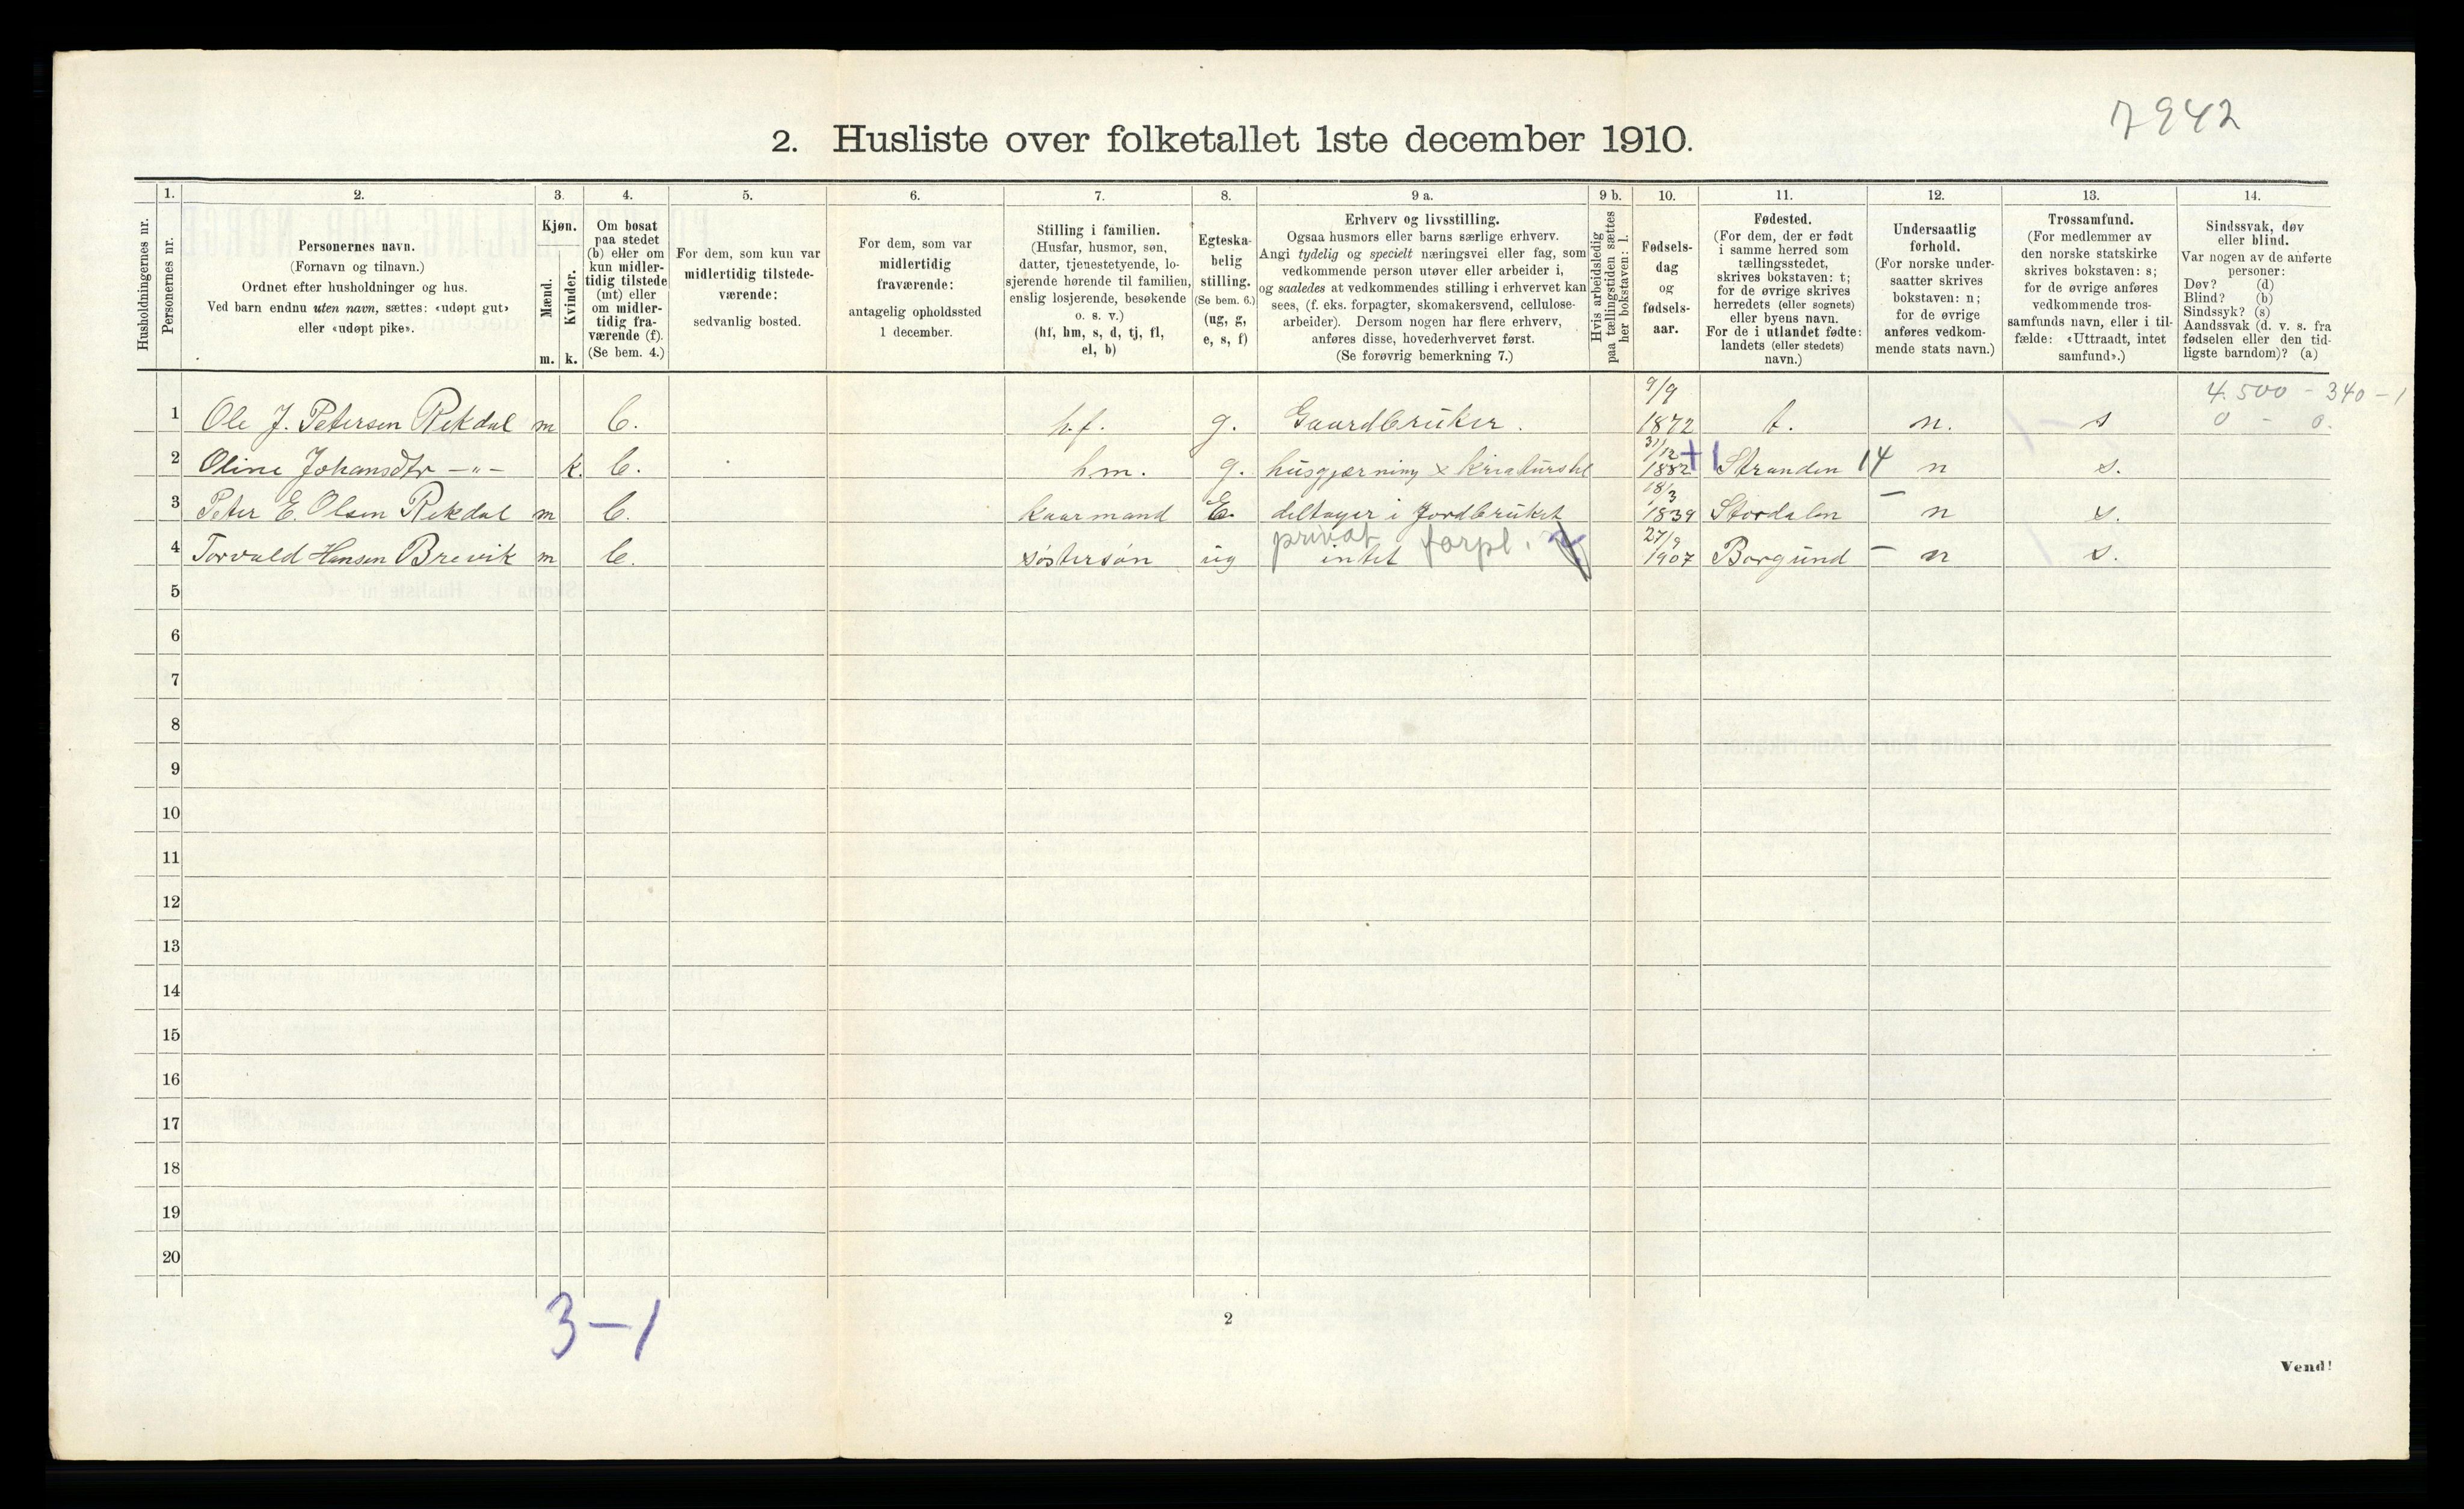 7942
2. Husliste over folketallet 1ste december 1910.
Husholdningernes nr.
1.
Personernes nr.
2.
Personernes navn.
(Fornavn og tilnavn.)
Ordnet efter husholdninger og hus.
Ved barn endnu uten navn, sættes: «udøpt gut»
eller «udøpt pike».
3.
Kjøn.
Mænd.
Kvinder.
m. k.
4.
Om bosat
paa stedet
(b) eller om
kun midler-
tidig tilstede
(mt) eller
om midler-
tidig fra-
værende (f).
(Se bem. 4.)
5.
For dem, som kun var
midlertidig tilstede-
værende:
sedvanlig bosted.
6.
For dem, som var
midlertidig
fraværende:
antagelig opholdssted
1 december.
7.
Stilling i familien.
(Husfar, husmor, søn,
datter, tjenestetyende, lo-
sjerende hørende til familien,
enslig losjerende, besøkende
o. s. v.)
(hf, hm, s, d, tj, fl,
el, b)
8.
Egteska-
belig
stilling.
(Se bem. 6.)
(ug, g,
e, s, f)
9 a.
Erhverv og livsstilling.
Ogsaa husmors eller barns særlige erhverv.
Angi tydelig og specielt næringsvei eller fag, som
vedkommende person utøver eller arbeider i,
og saaledes at vedkommendes stilling i erhvervet kan
sees, (f. eks. forpagter, skomakersvend, cellulose-
arbeider). Dersom nogen har flere erhverv,
anføres disse, hovederhvervet først.
(Se forøvrig bemerkning 7.)
9 b.
Hvis arbeidsledig
paa tællingstiden sættes
her bokstaven: l.
10.
Fødsels-
dag
og
fødsels-
aar.
11.
Fødested.
(For dem, der er født
i samme herred som
tællingsstedet,
skrives bokstaven: t;
for de øvrige skrives
herredets (eller sognets)
eller byens navn.
For de i utlandet fødte:
landets (eller stedets)
navn.)
12.
Undersaatlig
forhold.
(For norske under-
saatter skrives
bokstaven: n;
for de øvrige
anføres vedkom-
mende stats navn.)
13.
Trossamfund.
(For medlemmer av
den norske statskirke
skrives bokstaven: s;
for de øvrige anføres
vedkommende tros-
samfunds navn, eller i til-
fælde: «Uttraadt, intet
samfund».)
14.
Sindssvak, døv
eller blind.
Var nogen av de anførte
personer:
Døv? (d)
Blind? (b)
Sindssyk? (s)
Aandssvak (d. v. s. fra
fødselen eller den tid-
ligste barndom)? (a)
4.500 - 340 - 1
0 - 0.
1 Ole J. Petersen Rekdal m b. h.f. g. Gaardbruker. 9/9 1872 t. n. s
2 Oline Johansdtr -"- k. b. h.m. g. husgjærning x kreaturstel 31/12 1882 +1 Stranden 14 n s.
3 Peter E. Olsen Rekdal m b. kaarmand E. deltager i Jordbruket 18/3 1839 Stordalen - n s.
privat forpl.
4 Torvald Hansen Brevik m b. søstersøn ug intet 27/9 1907 Borgund - n s.
5
6
7
8
9
10
11
12
13
14
15
16
17
18
19
20
3-1
2
Vend!